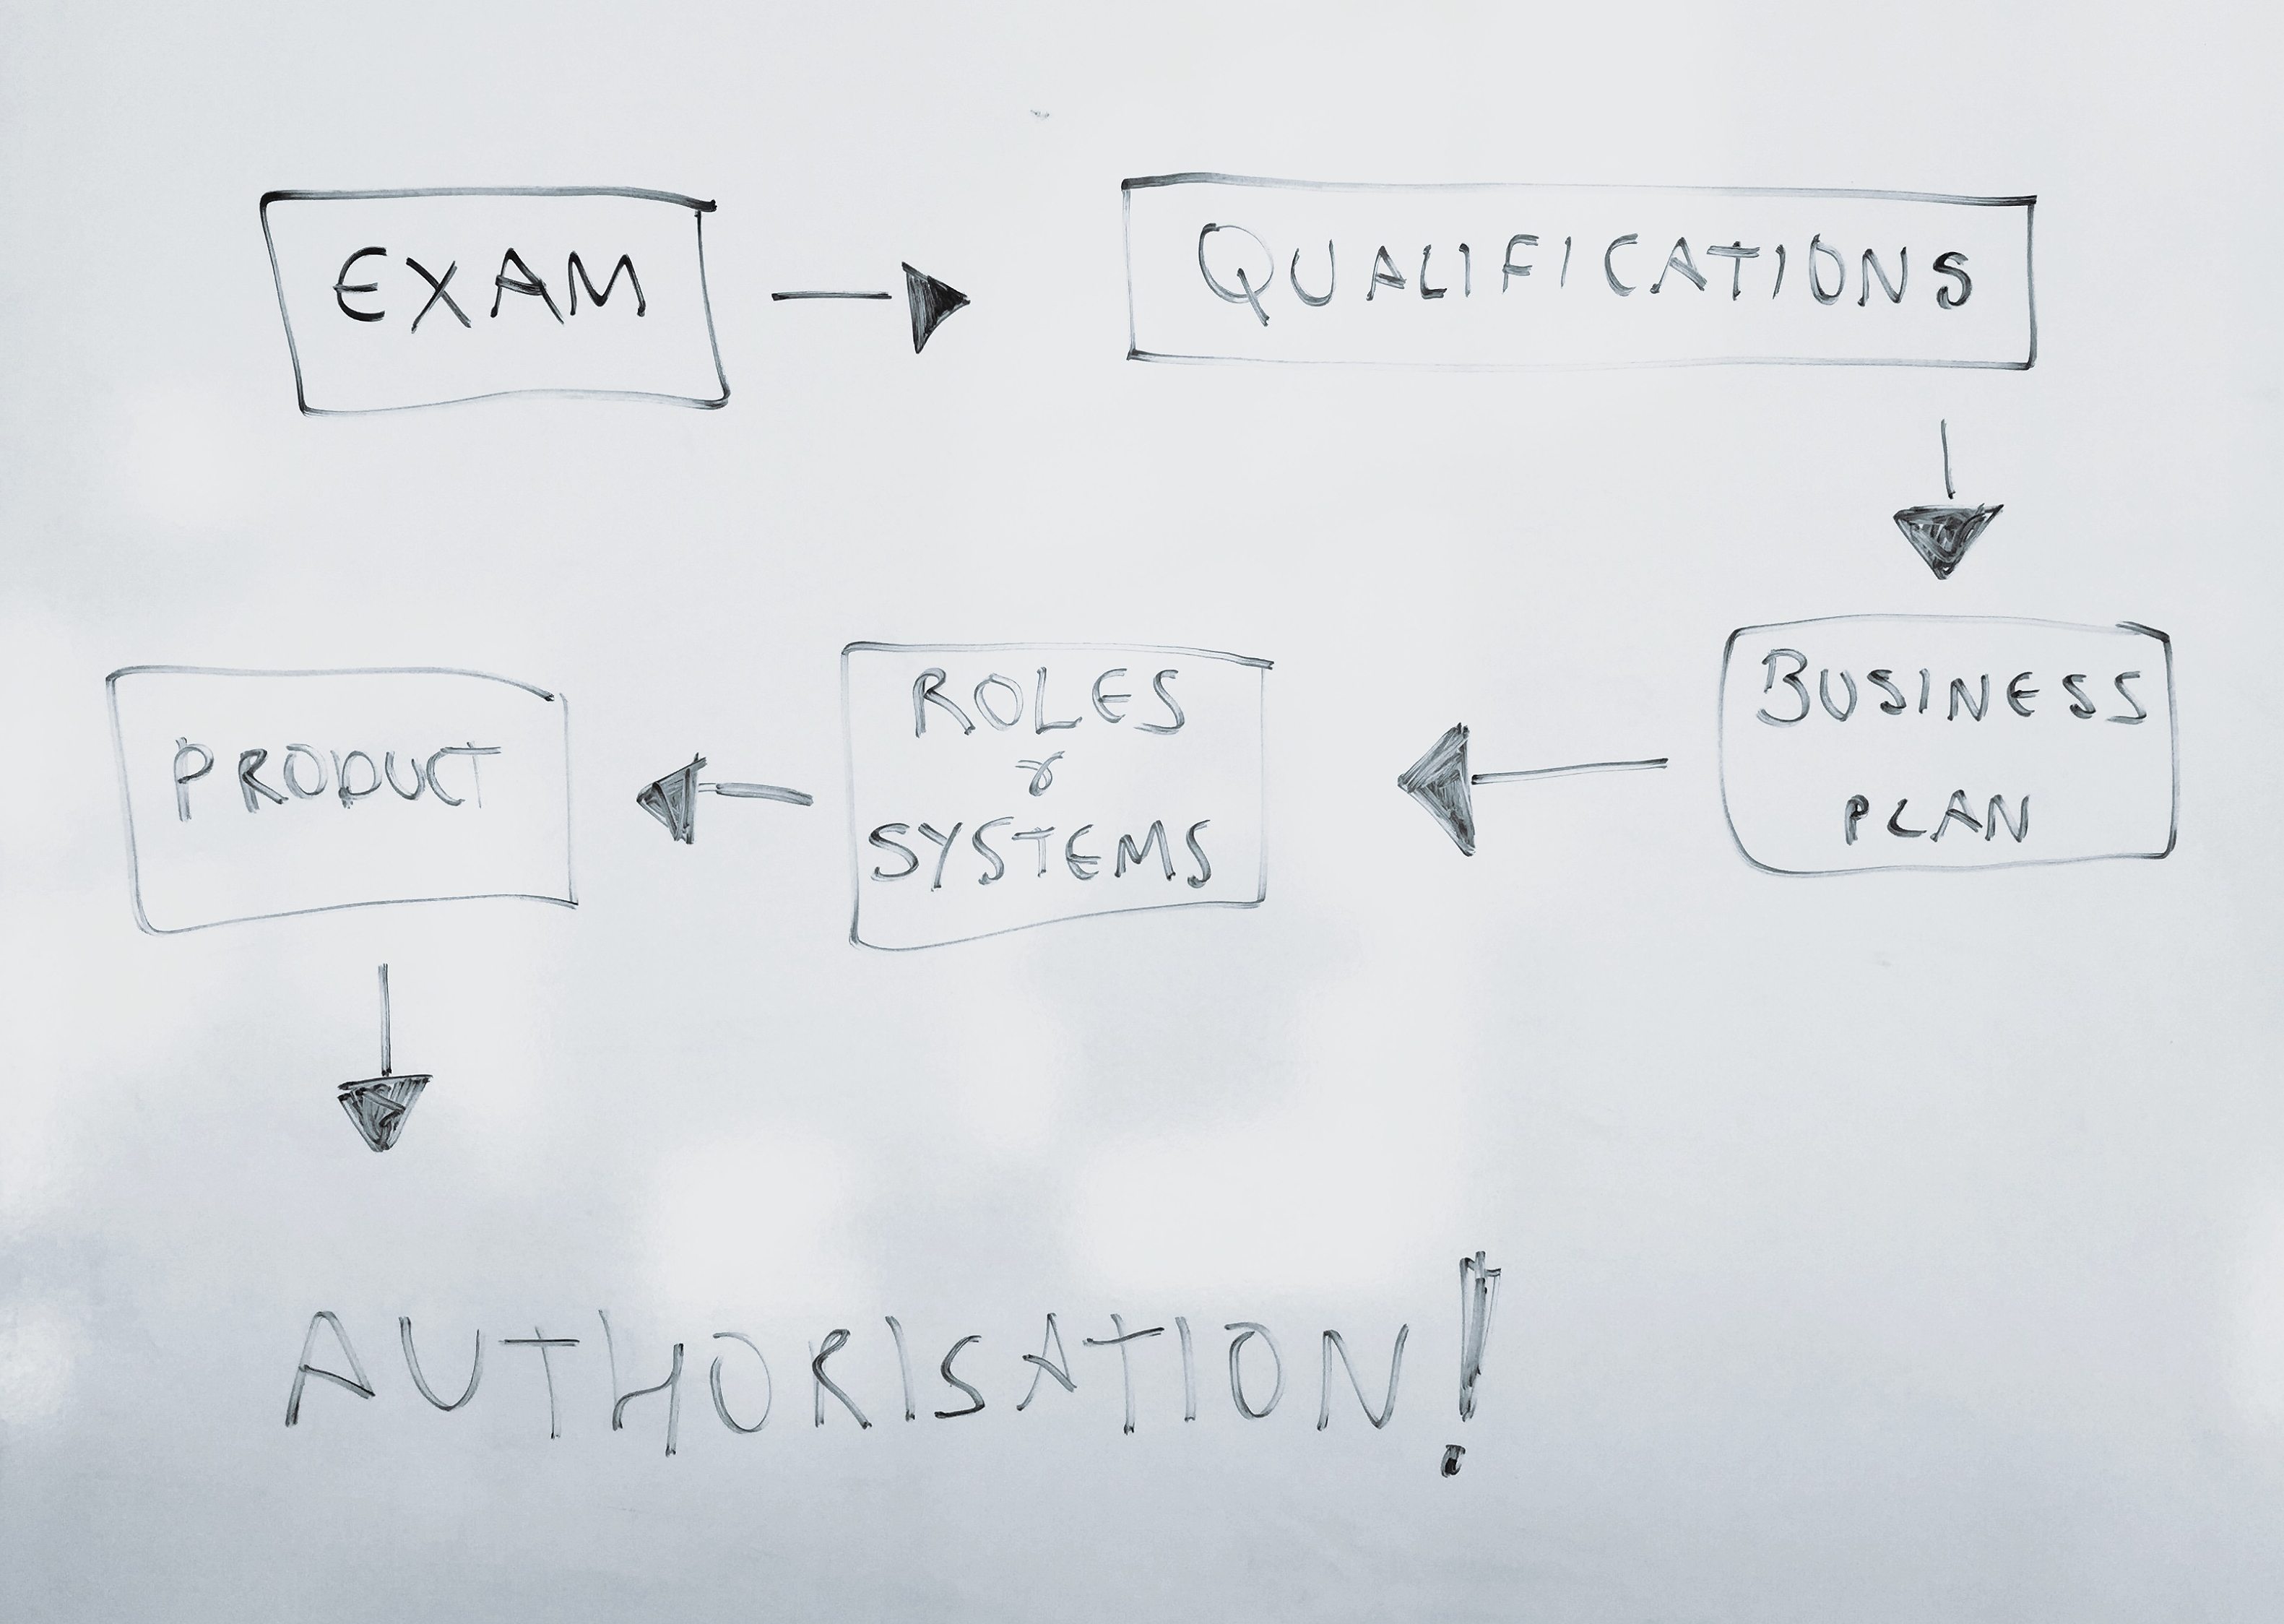 EXAM
QUALIFICATIONS
BUSINESS
PLAN
ROLES
&
SYSTEMS
PRODUCT
AUTHORISATION!